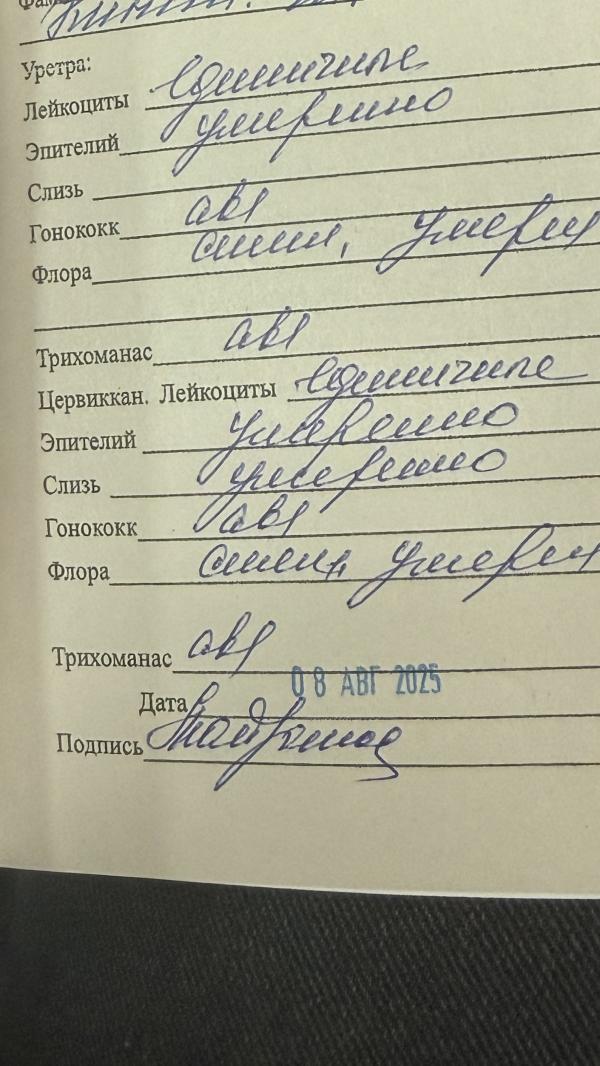 Уретра:
Лейкоциты единичные
Эпителий умеренно
Слизь
Гонококк abs
Флора смеш, умерен
Трихоманас abs
Цервиккан. Лейкоциты единичные
Эпителий умеренно
Слизь умеренно
Гонококк abs
Флора смеш, умерен
Трихоманас abs
08 АВГ 2025
Дата
Подпись